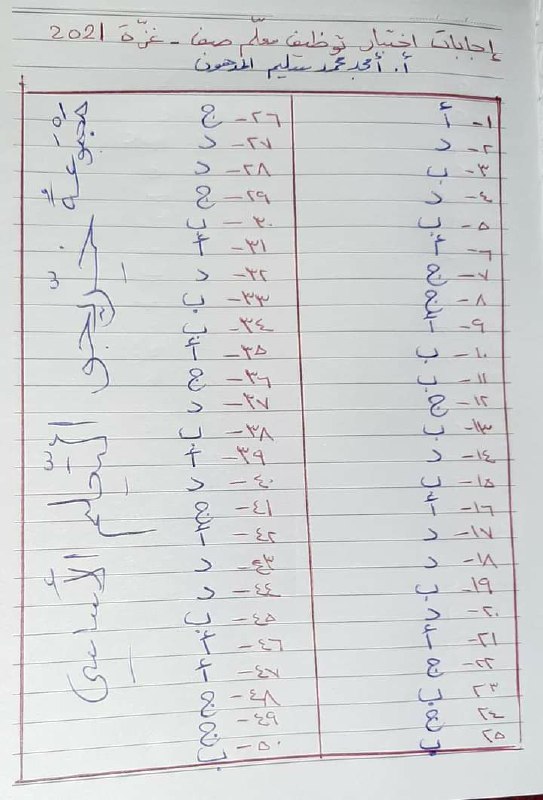 إجابات اختبار توظيف معلّم صف - غزّة 2021
أ. أمجد محمد سليم المدهون
١- أ
٢- د
٣- ب
٤- د
٥- ب
٦- أ
٧- ج
٨- ج
٩- أ
١٠- ب
١١- ب
١٢- ج
١٣- ب
١٤- د
١٥- ب
١٦- أ
١٧- د
١٨- د
١٩- ب
٢٠- د
٢١- أ
٢٢- ج
٢٣ ب
٢٤ ج
٢٥ ب
٢٦- ج
٢٧- د
٢٨- د
٢٩- ج
٣٠- ب
٣١- أ
٣٢- د
٣٣- ب
٣٤- ب
٣٥- أ
٣٦- ج
٣٧- د
٣٨- ب
٣٩- أ
٤٠- د
٤١- ج
٤٢- أ
٤٣- د
٤٤- د
٤٥- ب
٤٦- أ
٤٧- أ
٤٨- ج
٤٩- ج
٥٠- ب
مجموعة خرّيجو التّعليم الأساسي